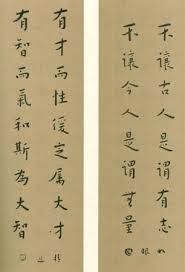 不讓古人是謂有志
不讓今人是謂無量
有才而性緩定屬大才
有智而氣和斯為大智